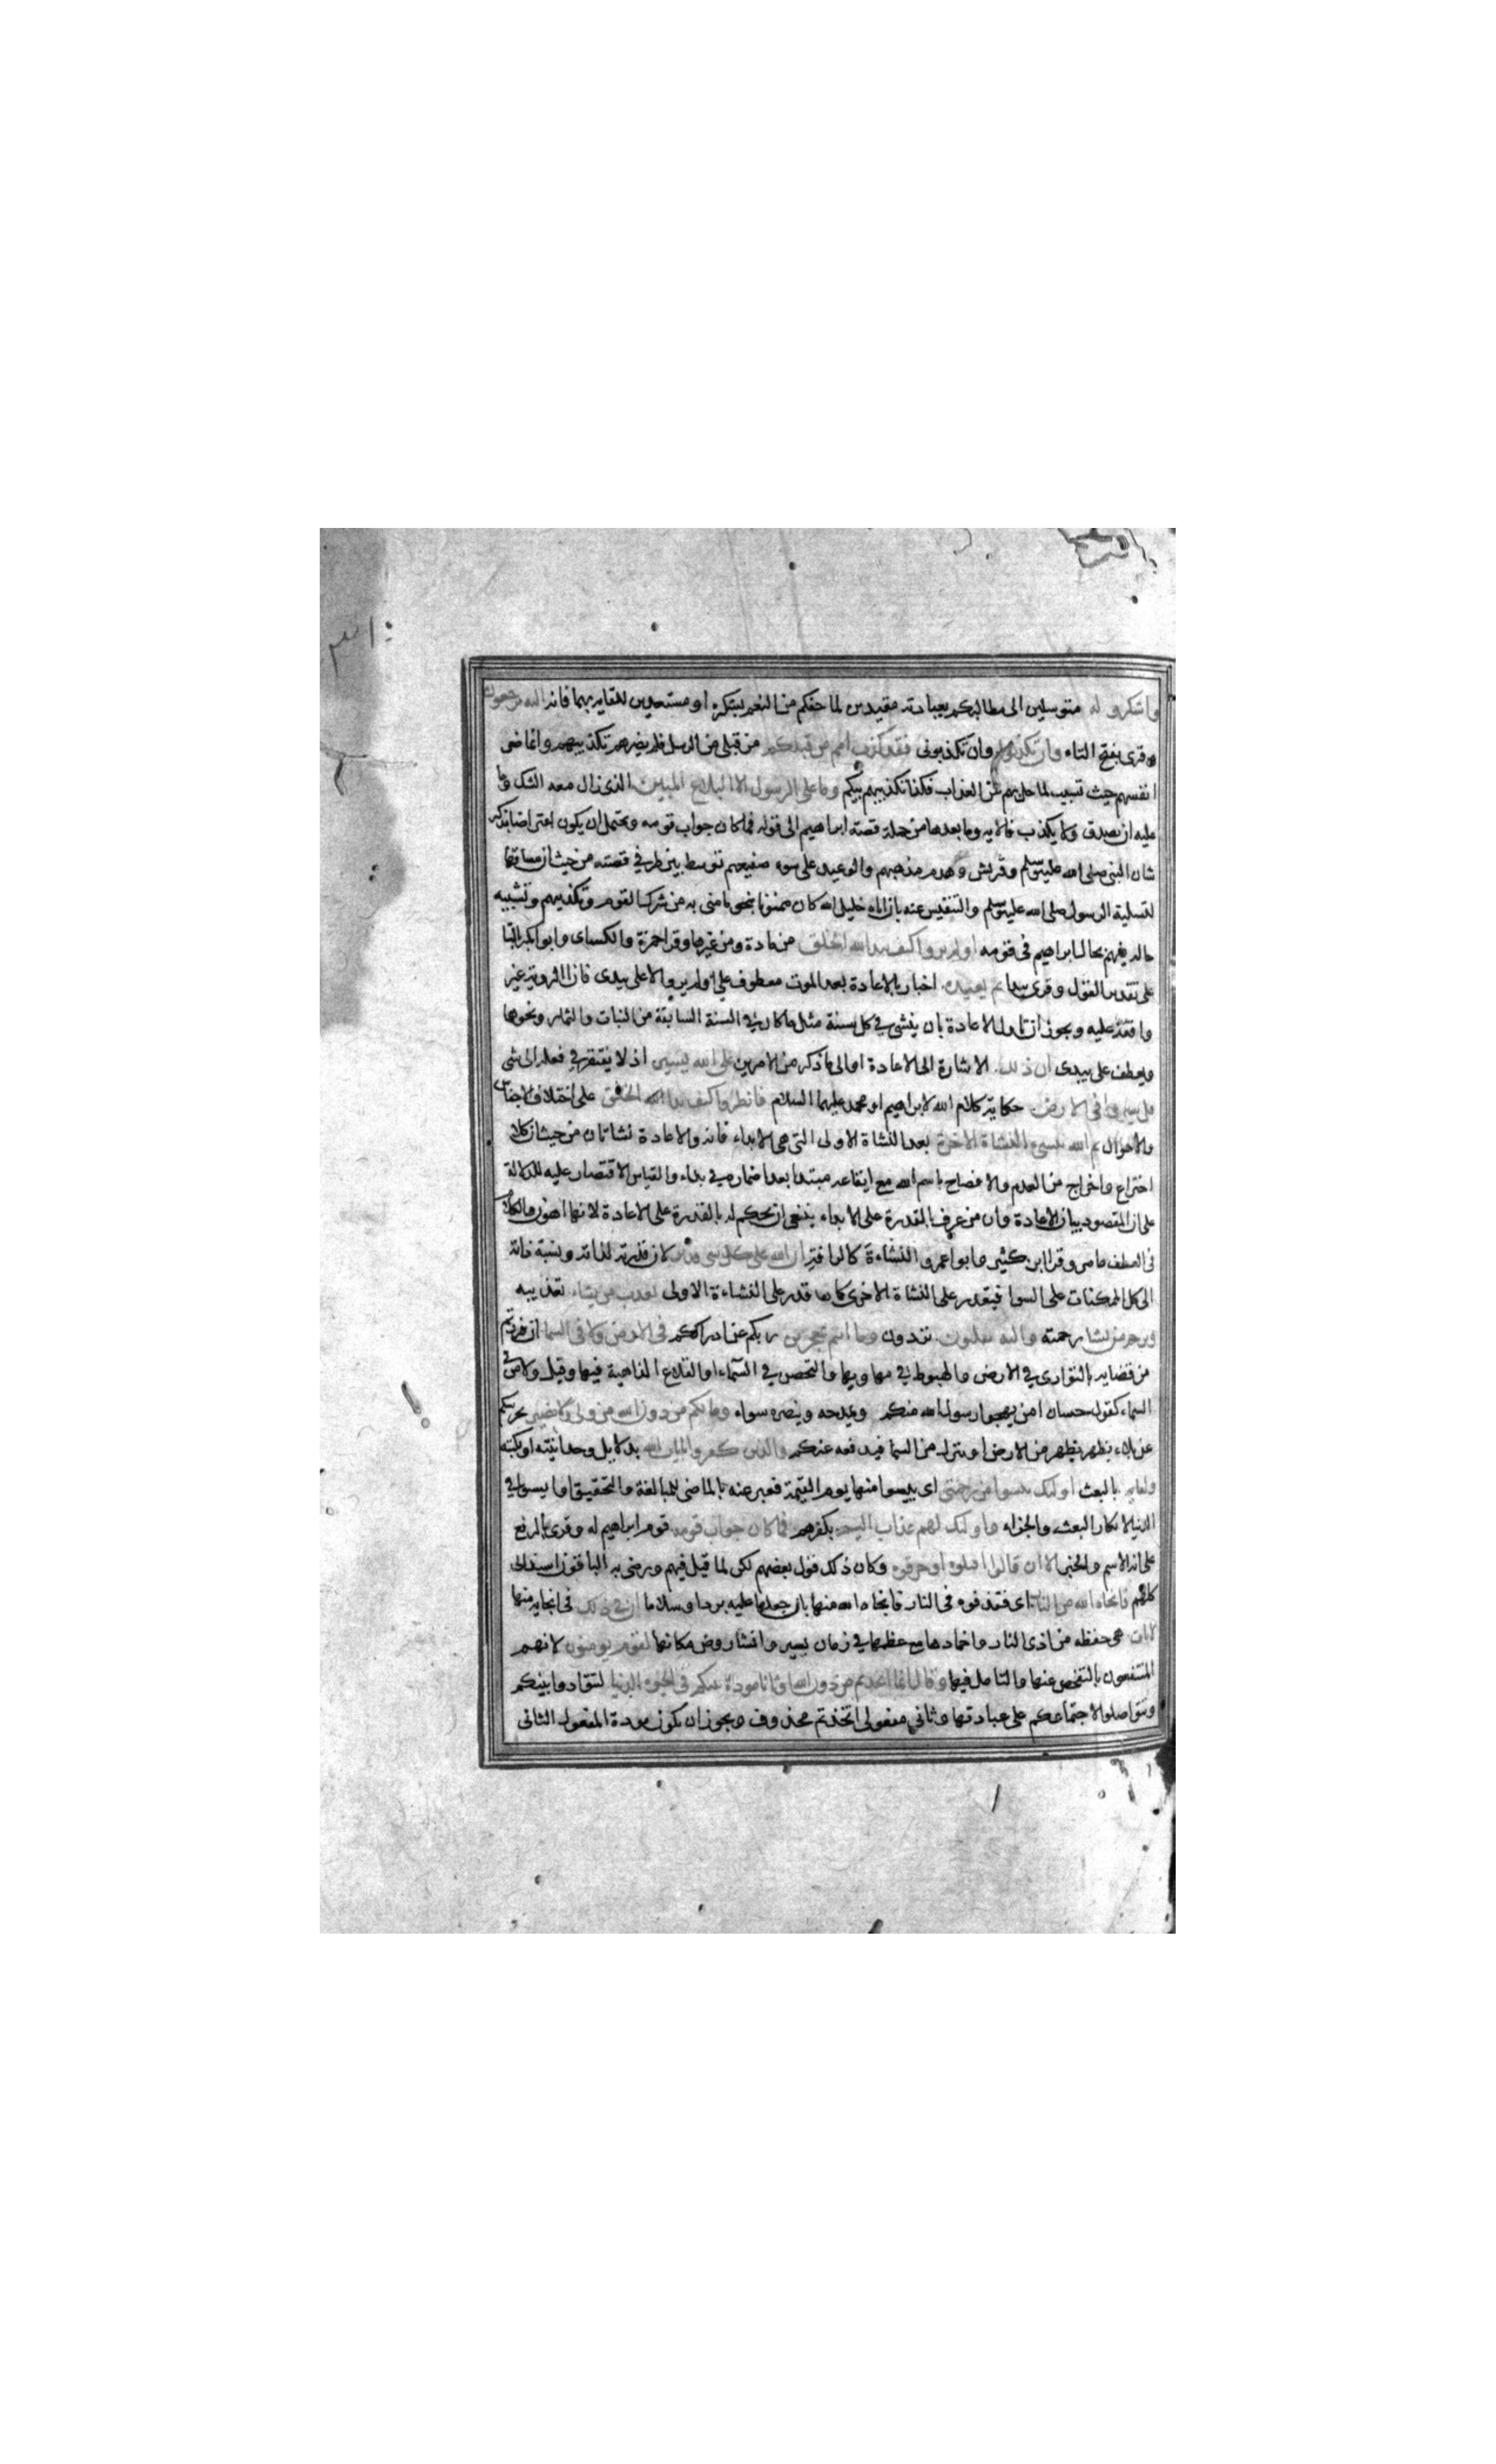 واشكروا له متوسلين الى مطالبكم بعبادته مقيدين لما حفكم من النعم بشكره او مستعدين للقايه بهما فانه اليه ترجعون
وقرى بفتح التاء وان تكذبوا وان تكذبونى فقد كذب امم من قبلكم من قبلى من الرسل فلم يضرهم تكذيبهم وانما ضر
انفسهم حيث تسبب لما حل بهم من العذاب فكذا تكذيبهم بيكم وما على الرسول الا البلاغ المبين الذى زال معه الشك وما
عليه ان يصدق ولا يكذب فالايه وما بعدها من جملة قصة ابراهيم الى قوله فما كان جواب قومه ويحتمل ان يكون اعتراضا بذكر
شان النبى صلى الله عليه وسلم وقريش وهدم مذهبهم والوعيد على سوء صنيعهم توسط بين طرفى قصته من حيث ان مساقها
لتسلية الرسول صلى الله عليه وسلم والتنفيس عنه بان اباه خليل الله كان ممنوا بنحو ما منى به من شرك القوم وتكذيبهم وتشبيه
حاله فيهم بحال ابراهيم فى قومه اولم يروا كيف يبدا الله الخلق من مادة ومن غيرها وقرا حمزة والكساى وابو بكر بالتا
على تقدير القول وقرى يبدا ثم يعيده اخبار بالاعادة بعد الموت معطوف على اولم يروا لا على يبدى فان الروية غير
واقعة عليه ويجوز ان تاول الاعادة بان ينشى فى كل سنة مثل ما كان فى السنة السابقة من النبات والثمار ونحوها
ويعطف على يبدى ان ذلك الاشارة الى الاعادة او الى ما ذكر من الامرين على الله يسير اذ لا يفتقر فى فعله الى شى
قل سيروا فى الارض حكاية كلام الله لابراهيم او محمد عليهما السلام فانظروا كيف بدا الله الخلق على اختلاف الاجناس
والاحوال ثم الله ينشىء النشاة الاخرة بعد النشاة الاولى التى هى الابداء فانه والاعادة نشاتان من حيث ان كلا
اختراع واخراج من العدم والافصاح باسم الله مع ايقاعه مبتدا بعد اضماره فى بداء والقياس الاقتصار عليه للدلالة
على ان المقصود بيان الاعادة وان من عرف بالقدرة على الابداء ينبغى ان يحكم له بالقدرة على الاعادة لانها اهون والكلام
فى العطف ما مر وقرا ابن كثير وابو عمرو النشاءة كالرافة ان الله على كل شى قدير لان قدرته لذاته ونسبة ذاته
الى كل الممكنات على السوا فيقدر على النشاة الاخرى كما قدر على النشاءة الاولى يعذب من يشاء تعذيبه
ويرحم من يشا رحمته واليه تقلبون تردون وما انتم بمعجزين ربكم عن ادراككم فى الارض ولا فى السما ان فررتم
من قضايه بالتوارى فى الارض والهبوط فى مهاويها والتحصن فى السماء او القلاع الذاهبة فيها وقيل ولا من فى
السماء كقول حسان امن يهجو رسول الله منكم ويمدحه وينصره سواء وما لكم من دون الله من ولى ولا نصير يحرسكم
عن بلاء يظهر من الارض او ينزل من السما فيدفعه عنكم والذين كفروا بايات الله بدلايل وحدانيته او بكتبه
ولقايه بالبعث اولئك يئسوا من رحمتى اى يئسوا منها يوم القيمة فعبر عنه بالماضى للمبالغة والتحقيق او ايسوا فى
الدنيا لانكار البعث والجزاء واولئك لهم عذاب اليم بكفرهم فما كان جواب قومه قوم ابراهيم له وقرى بالرفع
على انه الاسم والخبر الا ان قالوا اقتلوه او حرقوه وكان ذلك قول بعضهم لكن لما قيل فيهم ورضى به الباقون اسند الى
كلهم فانجاه الله من النار اى فقذفوه فى النار فانجاه الله منها بان جعلها عليه بردا وسلاما ان فى ذلك فى انجايه منها
لايات هى حفظه من اذى النار واخمادها مع عظمها فى زمان يسير وانشا روض مكانها لقوم يومنون لانهم
المنتفعون بالتفحص عنها والتامل فيها وقال انما اتخذتم من دون الله اوثانا مودة بينكم فى الحيوة الدنيا لتتوادوا بينكم
وتتواصلوا لاجتماعكم على عبادتها وثانى مفعولى اتخذتم محذوف ويجوز ان يكون مودة المفعول الثانى